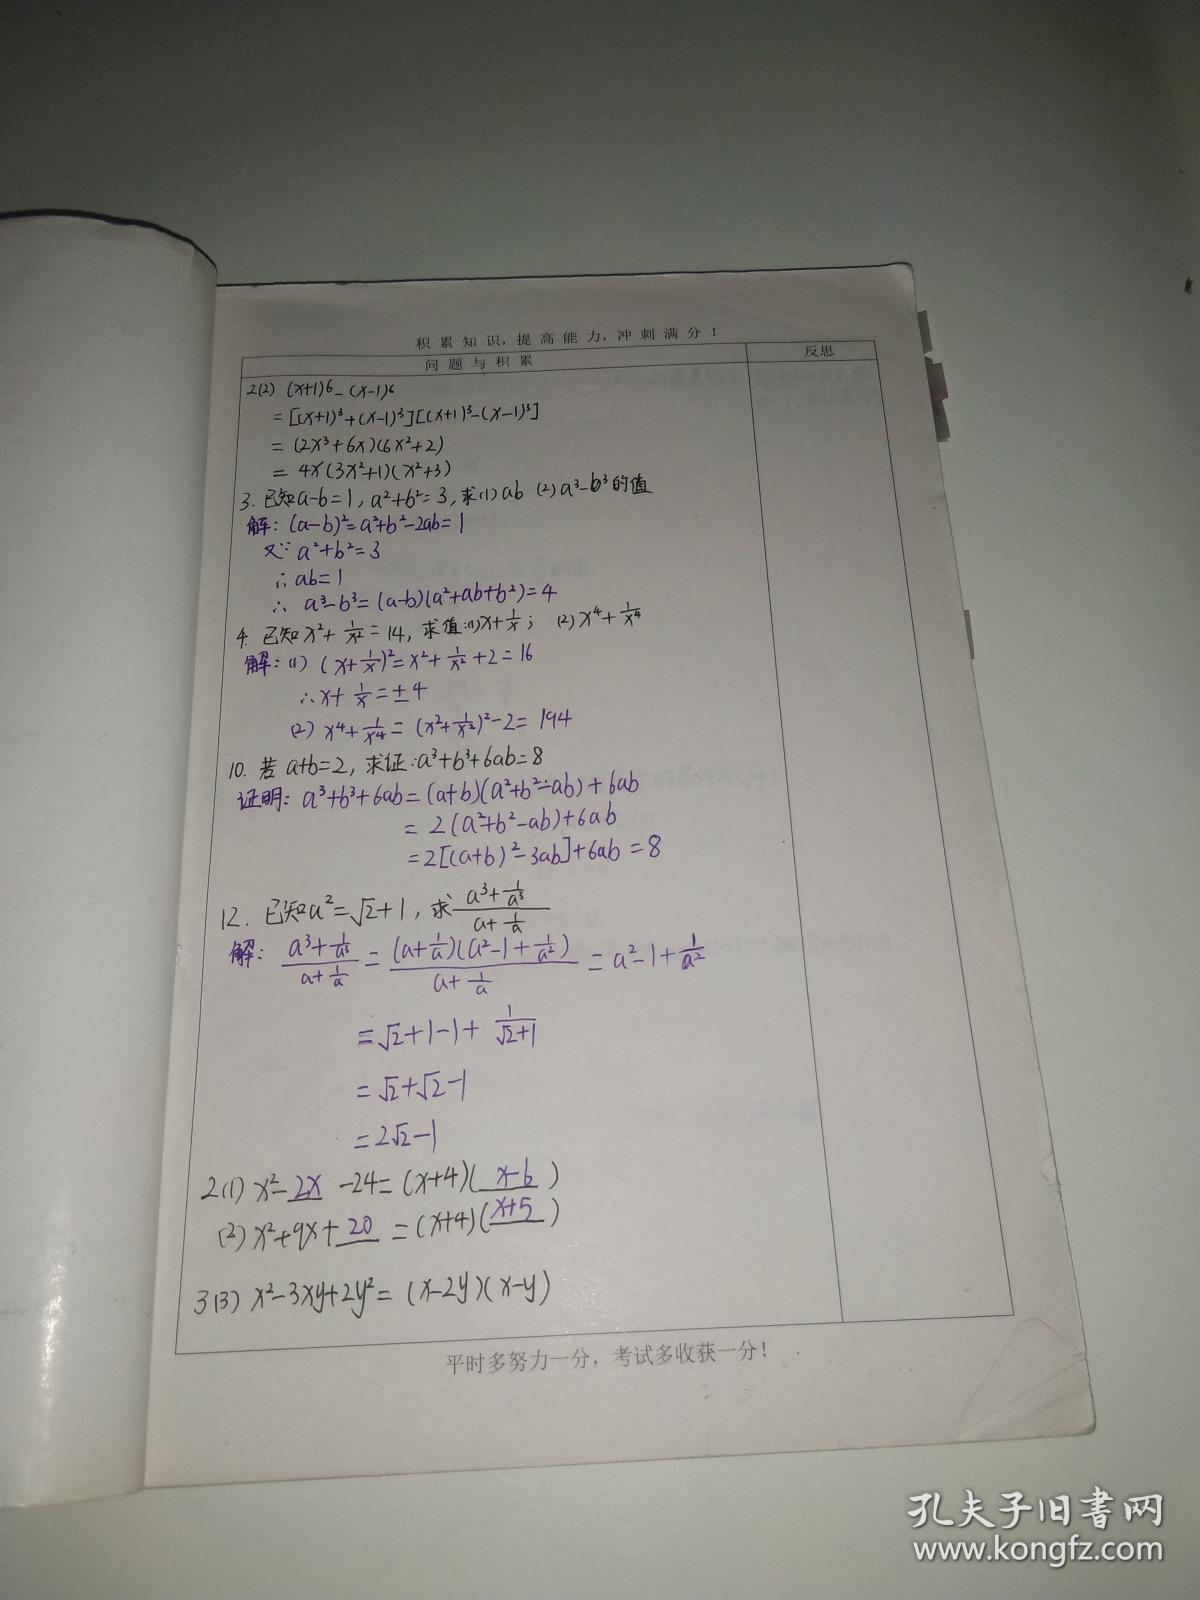 积累知识，提高能力，冲刺满分！
问题与积累 反思
2(2) (x+1)⁶-(x-1)⁶
=[(x+1)³+(x-1)³][(x+1)³-(x-1)³]
=(2x³+6x)(6x²+2)
=4x(3x²+1)(x²+3)
3. 已知a-b=1, a²+b²=3, 求(1)ab (2)a³-b³的值
解: (a-b)²=a²+b²-2ab=1
又∵ a²+b²=3
∴ab=1
∴ a³-b³=(a-b)(a²+ab+b²)=4
4. 已知x²+1/x²=14, 求值:(1)x+1/x; (2)x⁴+1/x⁴
解: (1) (x+1/x)²=x²+1/x²+2=16
∴x+1/x=±4
(2) x⁴+1/x⁴=(x²+1/x²)²-2=194
10. 若a+b=2, 求证:a³+b³+6ab=8
证明: a³+b³+6ab=(a+b)(a²+b²-ab)+6ab
=2(a²+b²-ab)+6ab
=2[(a+b)²-3ab]+6ab=8
12. 已知a²=√2+1, 求(a³+1/a³)/(a+1/a)
解: (a³+1/a³)/(a+1/a)=(a+1/a)(a²-1+1/a²)/(a+1/a)=a²-1+1/a²
=√2+1-1+1/(√2+1)
=√2+√2-1
=2√2-1
2(1) x²-2x-24=(x+4)(x-6)
(2) x²+9x+20=(x+4)(x+5)
3(3) x²-3xy+2y²=(x-2y)(x-y)
平时多努力一分，考试多收获一分！
孔夫子旧书网
www.kongfz.com